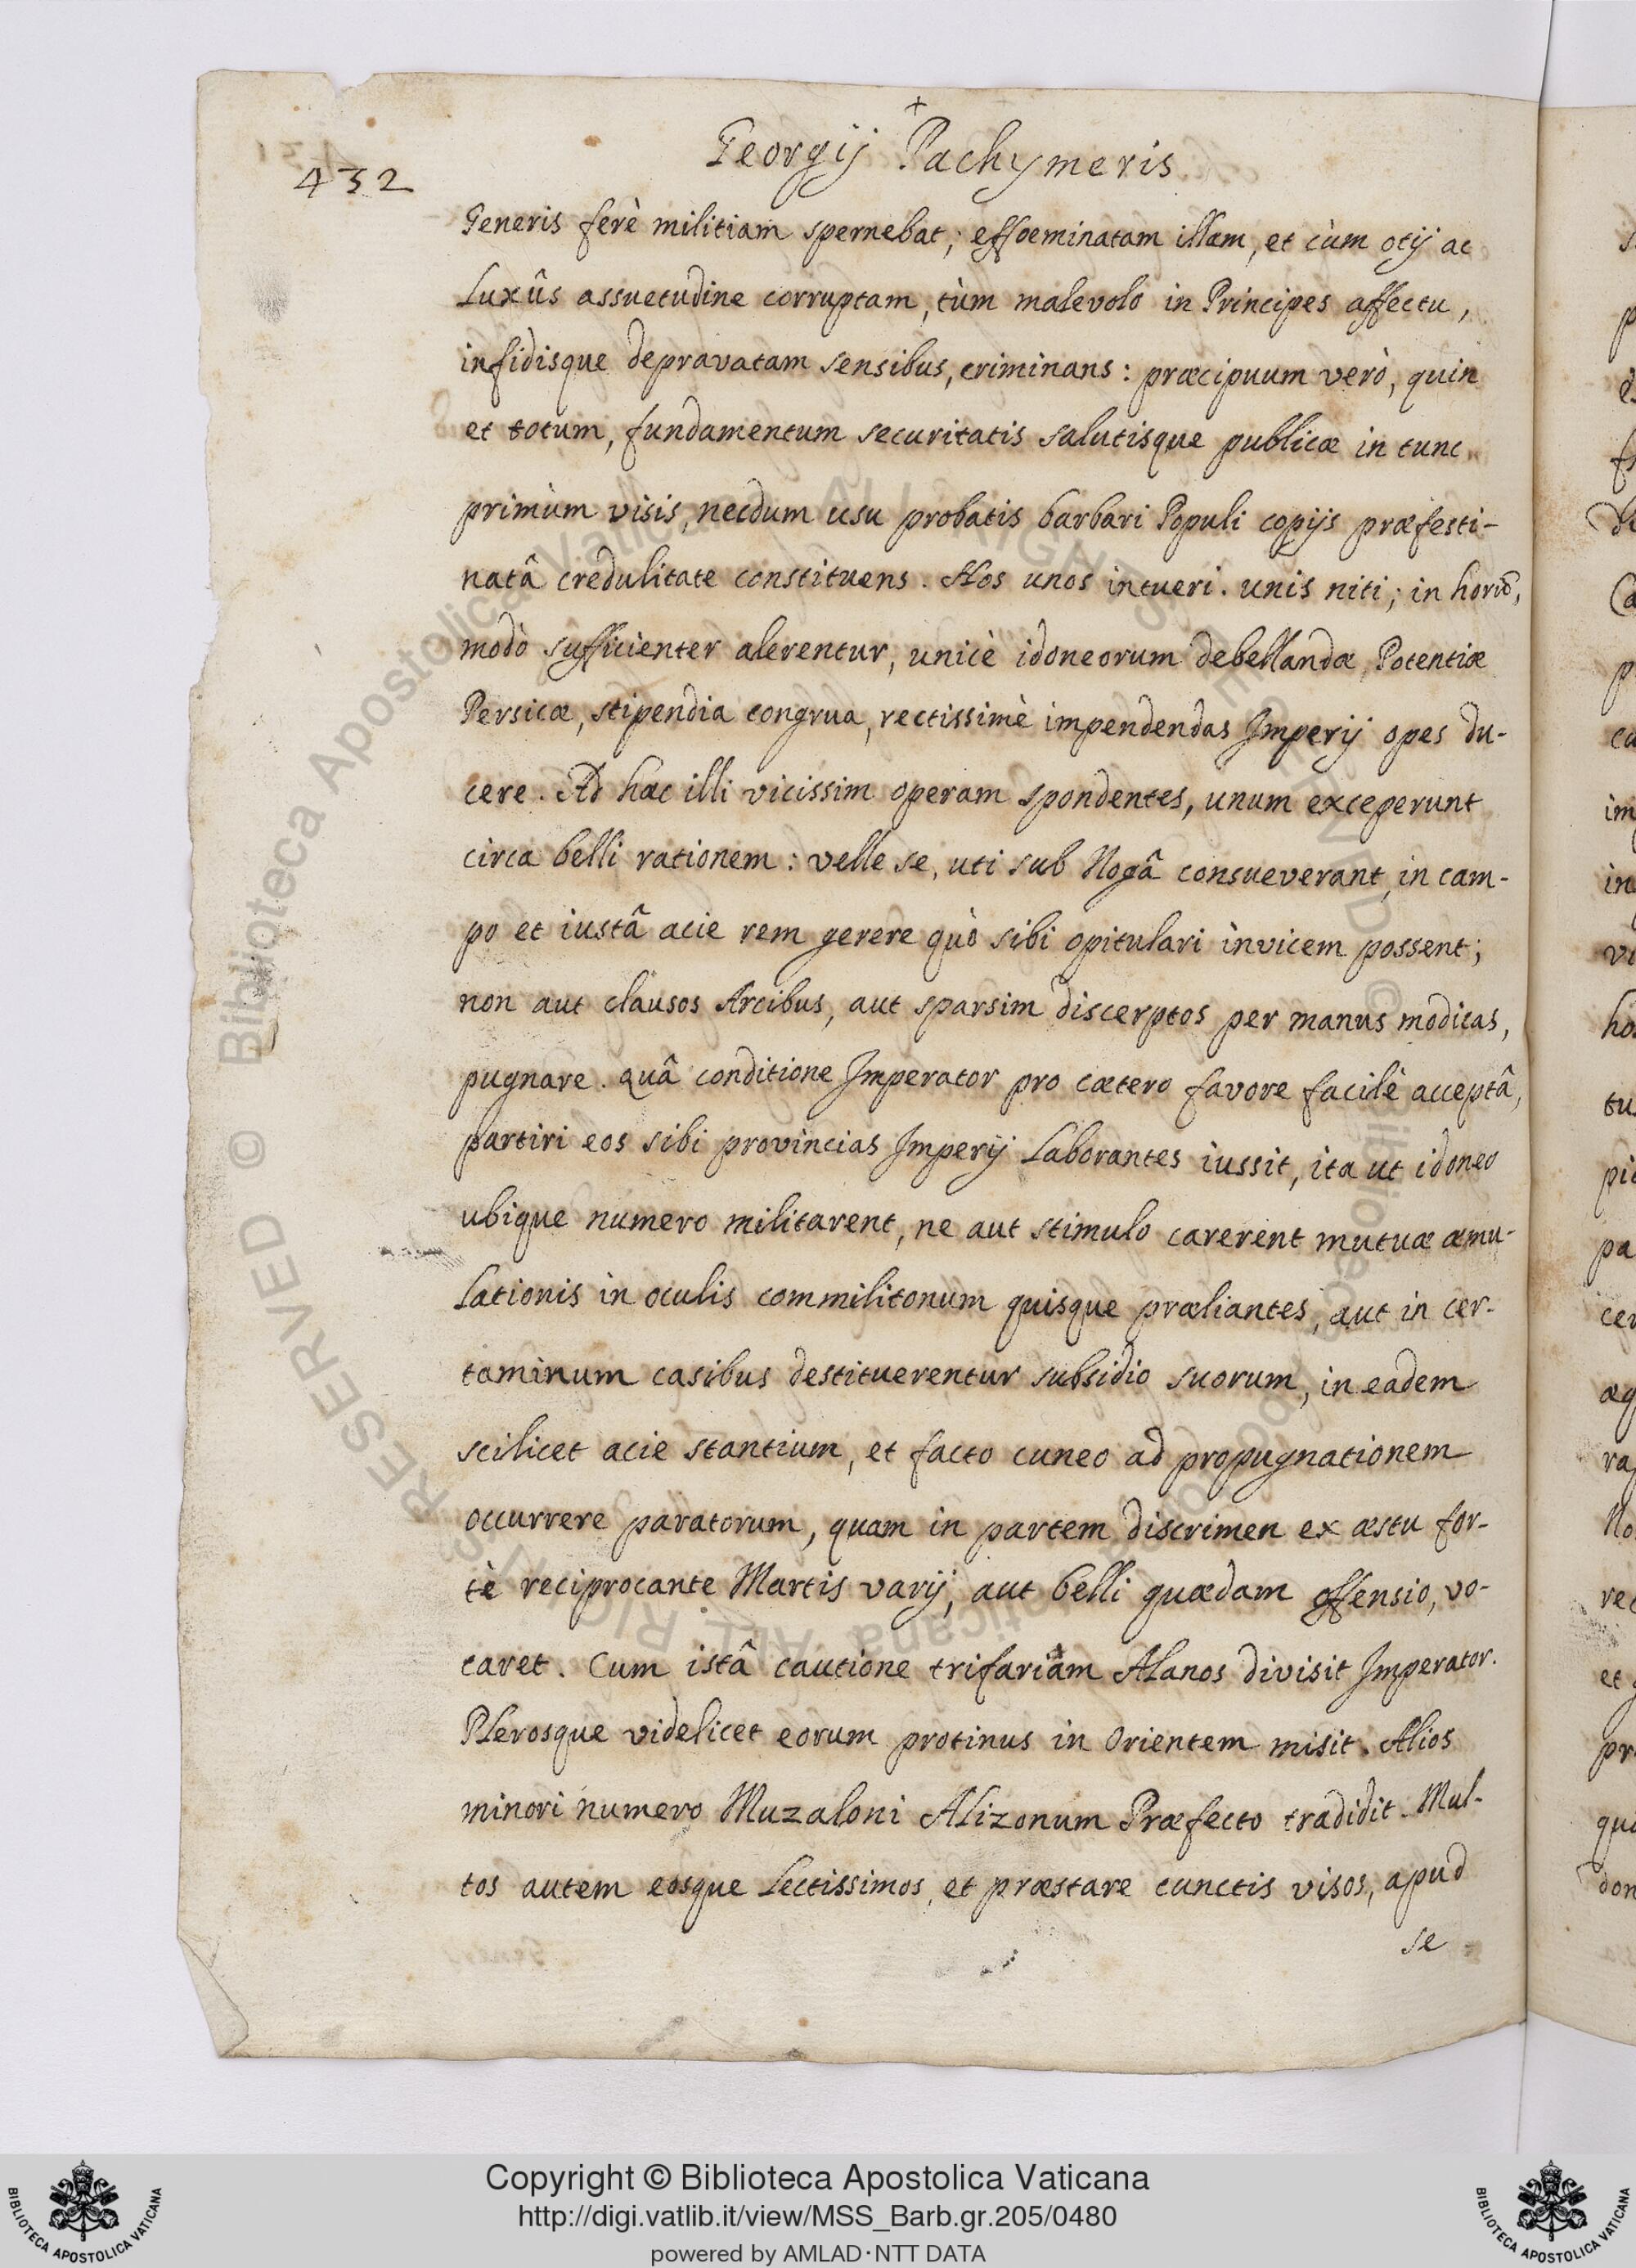 +
Georgij Pachymeris
432
Generis ferè militiam spernebat; effoeminatam illam, et cùm otij ac
Luxûs assuetudine corruptam, tùm malevolo in Principes affectu,
infidisque depravatam sensibus, criminans: præcipuum verò, quin
et totum, fundamentum securitatis salutisque publicæ in tunc
primùm visis, necdum usu probatis barbari Populi copijs præfesti-
natâ credulitate constituens. Hos unos intueri. unis niti; in
modò sufficienter alerentur, unicè idoneorum debellandæ Potentiæ
Persicæ, stipendia congrua, rectissimè impendendas Imperij opes du-
cere. Ad hæc illi vicissim operam spondentes, unum exceperunt
circa belli rationem: velle se, uti sub Nogâ consueverant, in cam-
po et iustâ acie rem gerere quò sibi opitulari invicem possent;
non aut clausos Arcibus, aut sparsim discerptos per manus modicas,
pugnare. quâ conditione Imperator pro cætero favore facilè acceptâ,
partiri eos sibi provincias Imperij Laborantes iussit, ita ut idoneo
ubique numero militarent, ne aut stimulo carerent mutuæ æmu-
Lationis in oculis commilitonum quisque præliantes, aut in cer-
taminum casibus destituerentur subsidio suorum, in eadem
scilicet acie stantium, et facto cuneo ad propugnationem
occurrere paratorum, quam in partem discrimen ex æstu for-
tè reciprocante Martis varij, aut belli quædam offensio, vo-
caret. Cum istâ cautione trifariam Alanos divisit Imperator.
Plerosque videlicet eorum protinus in Orientem misit. Alios
minori numero Muzaloni Alizonum Præfecto tradidit. Mul-
tos autem eosque Lectissimos, et præstare cunctis visos, apud
se
© Biblioteca Apostolica Vaticana ALL RIGHTS RESERVED © Biblioteca Apostolica Vaticana ALL RIGHTS RESERVED
Copyright © Biblioteca Apostolica Vaticana
http://digi.vatlib.it/view/MSS_Barb.gr.205/0480
powered by AMLAD·NTT DATA
BIBLIOTECA APOSTOLICA VATICANA
BIBLIOTECA APOSTOLICA VATICANA